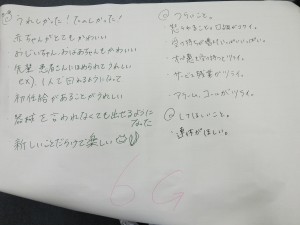 うれしかった！たのしかった！
赤ちゃんがとてもかわいい
おじいちゃん、おばあちゃんもかわいい
先輩、患者さんにほめられてうれしい
1人で回れるようになって
初任給があることがうれしい
器械を言われなくても出せるように
なった
新しいことだらけで楽しい
つらいこと。
怒られること。口調がツライ。
受け持ちが増えていっぱいいっぱい。
サービス残業がツライ。
・アラーム、コールがツライ。
してほしいこと。
・連休がほしい。
6G